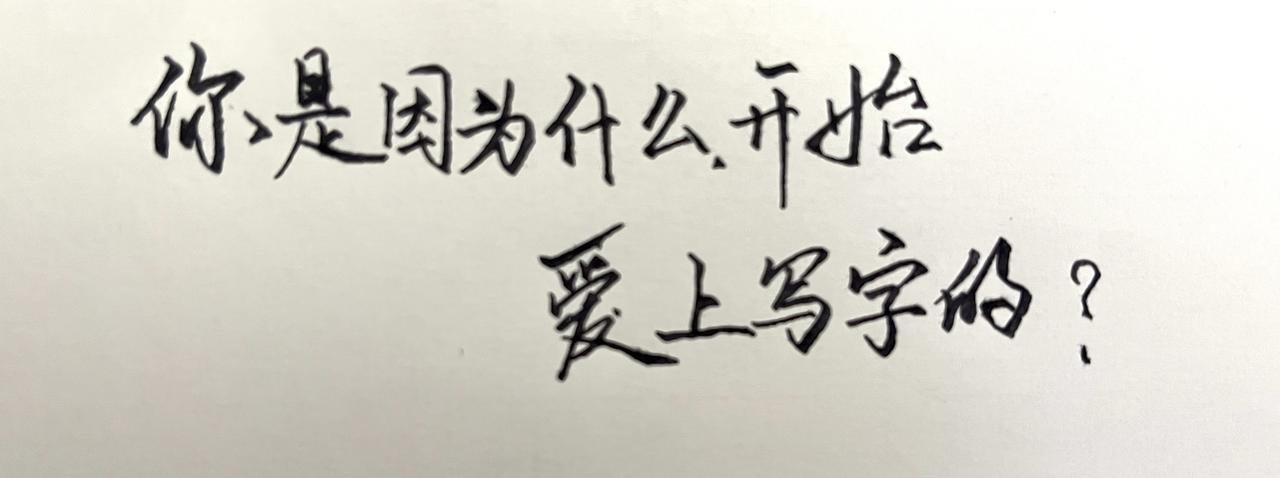 你是因为什么开始
爱上写字的？